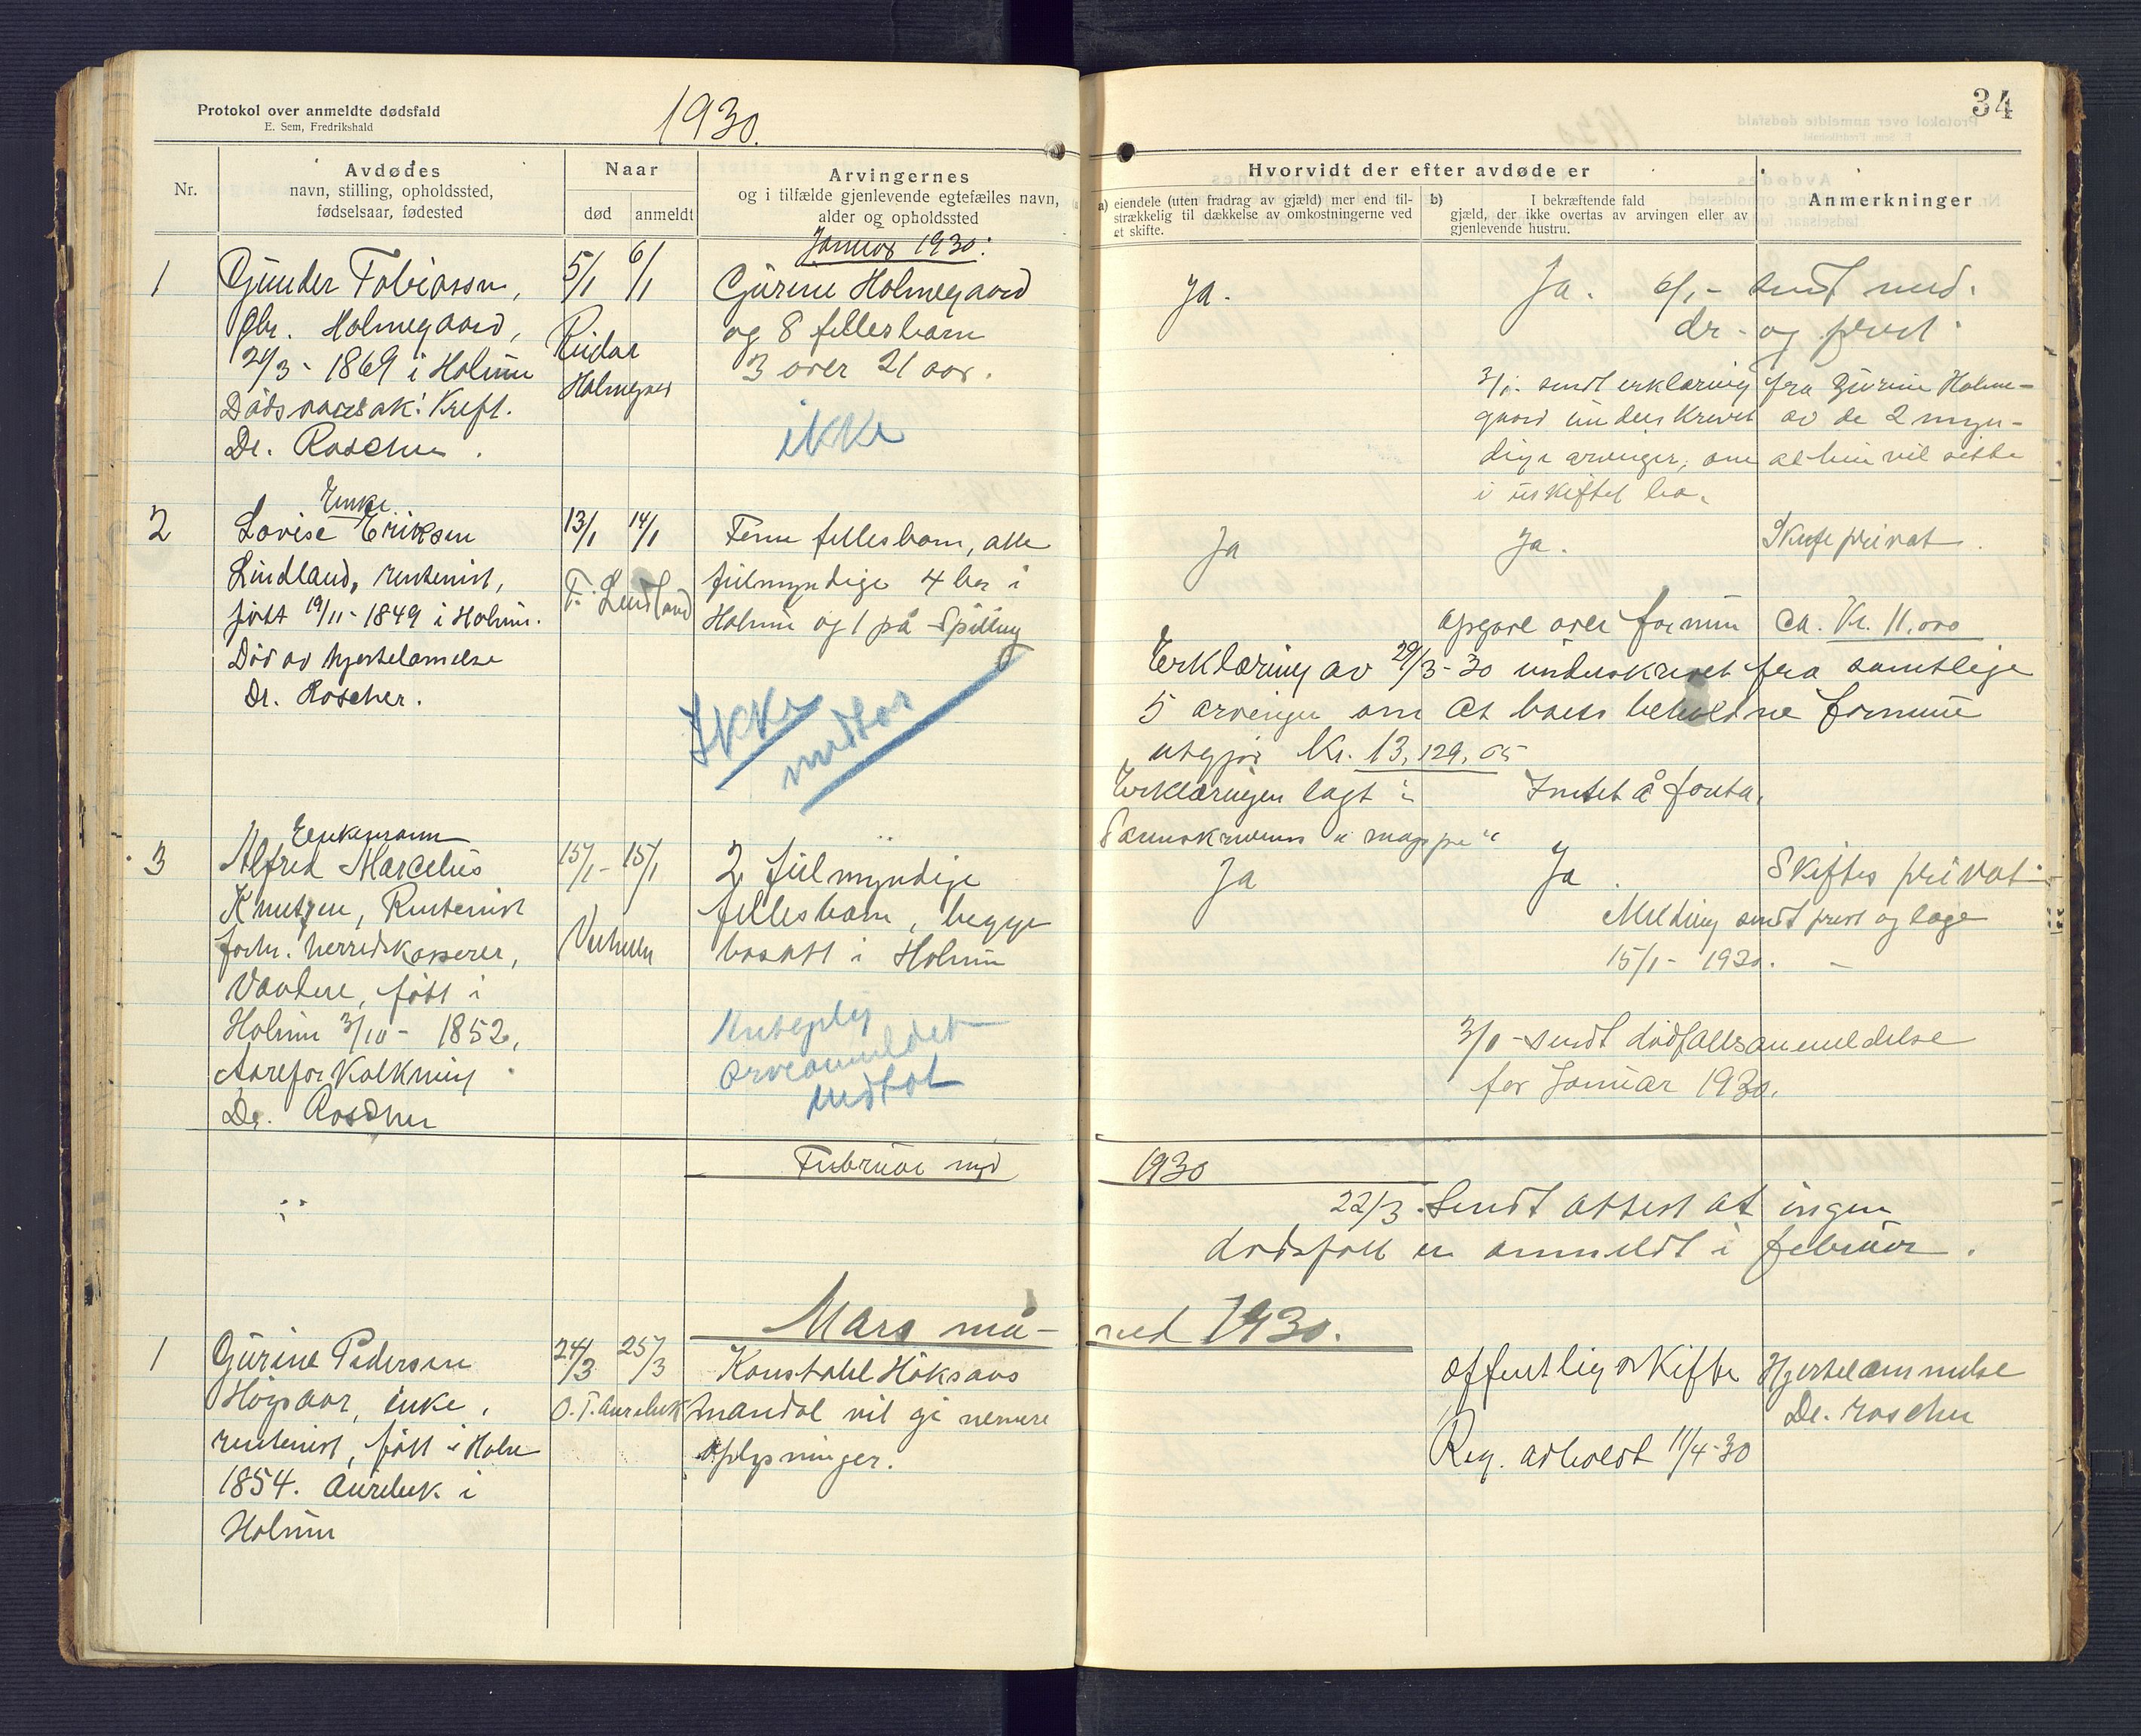 Protokol over anmeldte dødsfald
E. Sem, Fredrikshald
1930.
34
Nr.
Avdødes
navn, stilling, opholdssted,
fødselsaar, fødested
Naar
død
anmeldt
Arvingernes
og i tilfælde gjenlevende egtefælles navn,
alder og opholdssted
Hvorvidt der efter avdøde er
a) eiendele (uten fradrag av gjæld) mer end til-
strækkelig til dækkelse av omkostningerne ved
et skifte.
b) I bekræftende fald
gjæld, der ikke overtas av arvingen eller av
gjenlevende hustru.
Anmerkninger
Januar 1930:
1
Gunder Tobiassen,
gbr. Holmegaard,
24/3 - 1869 i Holum
Dødsaarsak: Kreft.
Dr. Roscher.
5/1
6/1
Reidar
Holmegaard
Gurine Holmegaard
og 8 fellesbarn
3 over 21 aar.
ikke
Ja.
Ja.
6/1 - sendt med.
dr - og prest
3/1- sendt erklæring fra Gurine Holme-
gaard underskrevet av de 2 myn-
dige arvinger, om at hun vil sitte
i uskiftet bo.
2
Enke
Lovise Eriksen
Lindland, rentenist,
født 19/11 - 1849 i Holum.
Død av hjertelammelse
Dr. Roscher.
13/1
14/1
T. Lindland
Fem fellesbarn, alle
fulmyndige 4 bor i
Holum og 1 på
Ikke
mottat
Ja
Ja.
Skifte privat.
Opgave over formue ca. Kr. 11.000
Erklæring av 29/3-30 underskrevet fra samtlige
5 arvinger om at boets beholdne formue
utgjør Kr. 13,129,05
Erklæringen lagt i
Intet å fonta.
"mappe"
3
Enkemann
Alfred Marcelius
Knutsen, Rentenist
forh. herredskasserer,
født i
Holum 3/10 - 1852,
Aareforkalkning
Dr. Roscher
15/1 -
15/1
2 fulmyndige
fellesbarn, begge
bosatt i Holum
arveanmeldet
mottat
Ja
Ja.
Skiftes privat
Melding sendt prest og læge
15/1 - 1930. -
3/1 - sendt dødfallsanmeldelse
for Januar 1930.
Februar md 1930
22/3. Sendt attest at ingen
dødsfall er anmeldt i februar.
Mars må-
ned 1930.
1
Gurine Pedersen
Høgsaar, enke,
rentenist, født i Holum
1854. Aurebek i
Holum
24/3
25/3
O. T. Aurebek
Konstabel Høksaas
Mandal vil gi nemere
oplysninger.
offentlig skifte
Reg. avholdt 11/4-30
Hjertelammelse
Dr. roscher